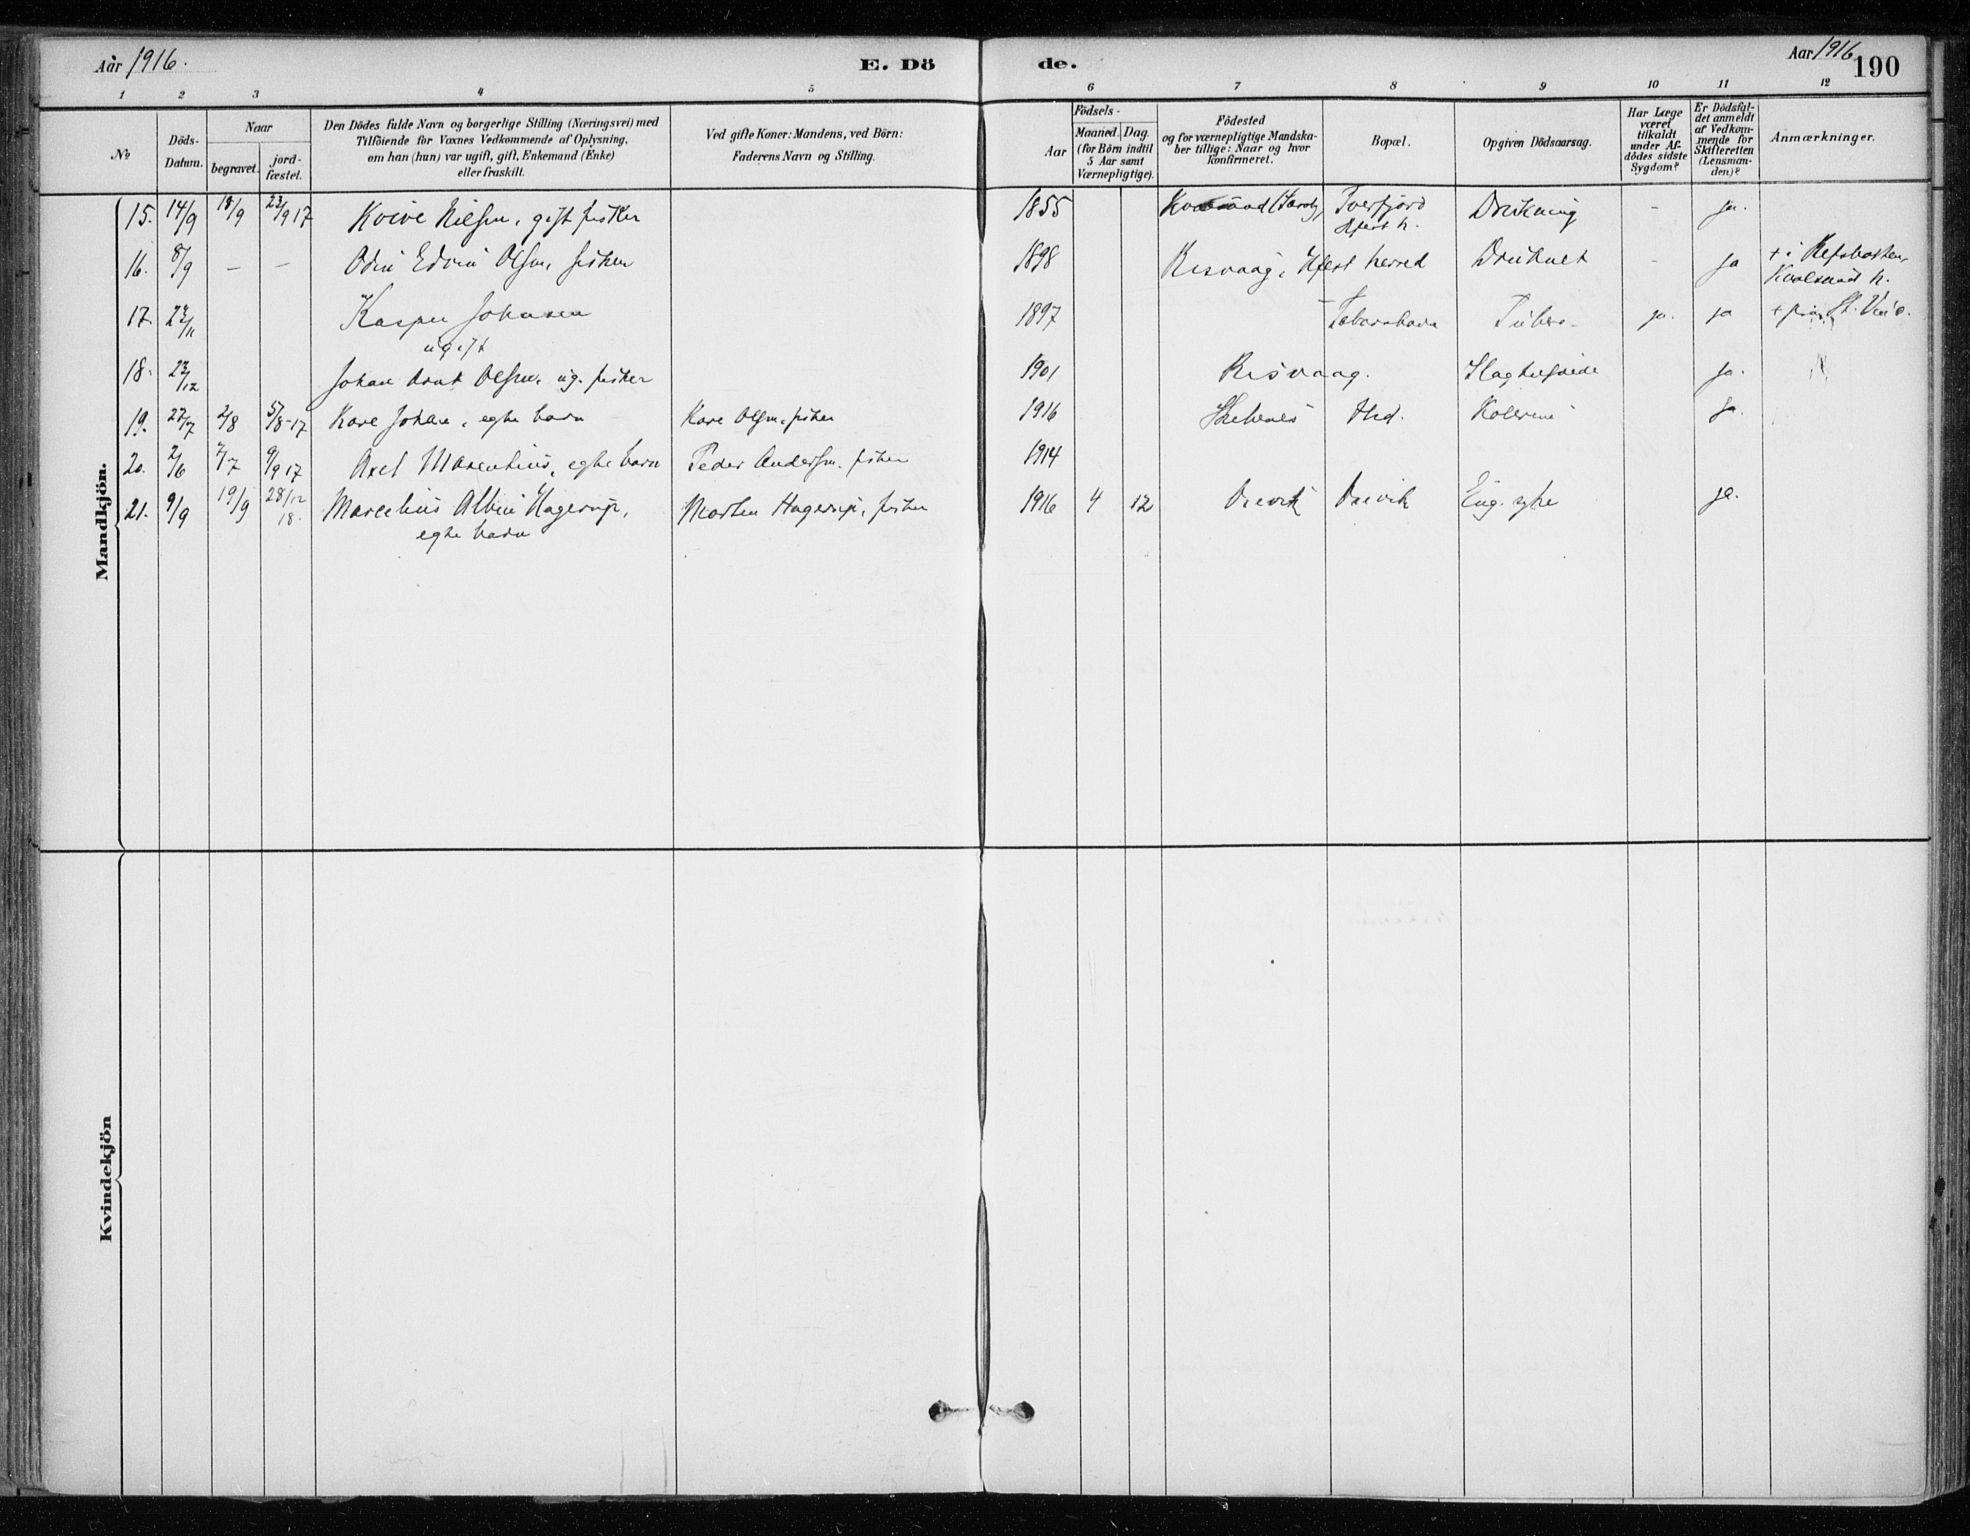 Aar 1916.
E. Dö
de.
Aar 1916
190
1 2 3 4 5 6 7 8 9 10 11 12
No
Döds-Datum.
Naar
begravet.
jord-fæstet.
Den Dödes fulde Navn og borgerlige Stilling (Næringsvei) med
Tilföiende for Voxnes Vedkommende af Oplysning,
om han (hun) var ugift, gift, Enkemand (Enke)
eller fraskilt.
Ved gifte Koner: Mandens, ved Börn:
Faderens Navn og Stilling.
Födsels-
Aar
Maaned. Dag.
(for Börn indtil
5 Aar samt
Værnepligtige).
Födested
og for værnepligtige Mandska-
ber tillige: Naar og hvor
konfirmeret.
Bopæl.
Opgiven Dödsaarsag.
Har Læge
været
tilkaldt
under Af-
dödes sidste
Sygdom?
Er Dödsfal-
det anmeldt
af Vedkom-
mende for
Skifteretten
(Lensman-
den)?
Anmærkninger.
Mandkjön.
15. 14/9 18/9 23/9 17 Nilsen, gift fisker 1855 Tverfjord Drukning - ja.
16. 8/9 - - Odin Edvin Olsen, fisker 1898 Risvaag, herred Druknet - ja + i
h.
17. 23/11 Kasper Johnsen 1897 ja. ja +
ugift
18. 23/12 Johan Olsen, ug. fisker 1901 Risvaag. ja.
19. 27/7 2/8 5/8-17 Kare Johan, egte barn Kare Olsen, fisker 1916 ja.
20. 2/6 7/7 9/9 17 Axel egte barn Peder Andersen, fisker 1914
21. 9/9 19/9 28/12 18. Marcelius Albin Hagerup, Morten Hagerup, fisker 1916 4 12 Eng. syke ja.
egte barn
Kvindekjön